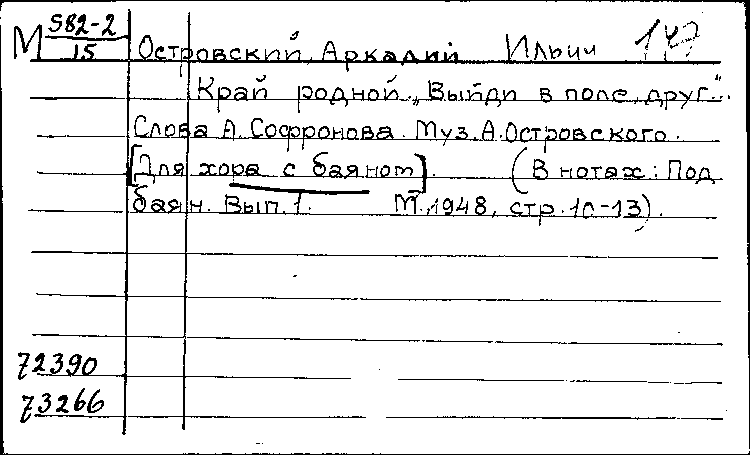 М 582-2/15
Островский, Аркадий Ильич 147
Край родной. „Выйди в поле, друг".
Слова А. Софронова. Муз. А. Островского.
[Для хора с баяном]. (В нотах: Под
баян. Вып. 1. М., 1948, стр. 10-13).
72390
73266